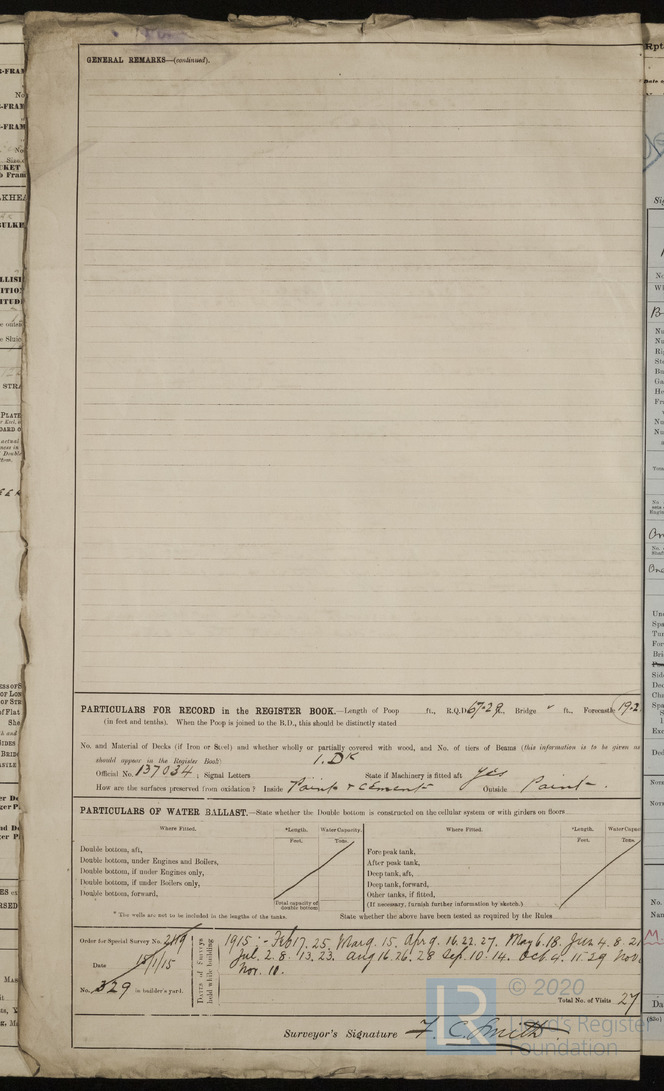 GENERAL REMARKS—(continued).
PARTICULARS FOR RECORD in the REGISTER BOOK.—Length of Poop ft., R.Q.D. 67.29 ft., Bridge ft., Forecastle 19.2
(in feet and tenths). When the Poop is joined to the B.D., this should be distinctly stated
No. and Material of Decks (if Iron or Steel) and whether wholly or partially covered with wood, and No. of tiers of Beams (this information is to be given as
should appear in the Register Book) 1.Dk
Official No. 137034; Signal Letters State if Machinery is fitted aft Yes
How are the surfaces preserved from oxidation? Inside Paint & Cement Outside Paint.
PARTICULARS OF WATER BALLAST.—State whether the Double bottom is constructed on the cellular system or with girders on floors
Where Fitted. *Length. Water Capacity. Where Fitted. *Length. Water Capac
Feet. Tons. Feet. Tons.
Double bottom, aft, Fore peak tank,
Double bottom, under Engines and Boilers, After peak tank,
Double bottom, if under Engines only, Deep tank, aft,
Double bottom, if under Boilers only, Deep tank, forward,
Double bottom, forward, Other tanks, if fitted,
Total capacity of double bottom (If necessary, furnish further information by sketch.)
* The wells are not to be included in the lengths of the tanks. State whether the above have been tested as required by the Rules
Order for Special Survey No.
Date 15/1/15
No. 329 in builder's yard.
Dates of Surveys held while building
1915:- Feb 17. 25. Mar 9. 15. Apr 9. 16. 22. 27. May 6. 18. Jun 4. 8. 21
Jul. 2. 8. 13. 23. Aug 16. 26. 28 Sep. 10. 14. Oct 4. 11. 29 Nov.
Nov. 10.
Total No. of Visits 27
Surveyor's Signature F. C. Smith
© 2020
LR
Lloyd's Register
Foundation